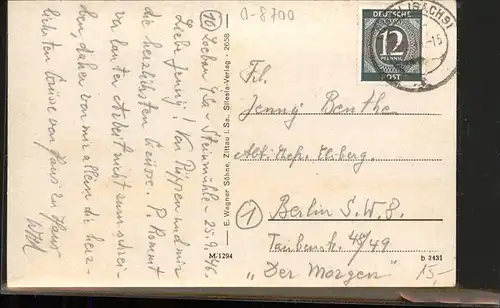 (10) Löbau Sa.- Steinmühle 25.9.46.
Liebe Jenny! Von Püppen und mir
die herzlichsten Grüsse. P. kommt
vor lauter Arbeit nicht zum schrei-
ben, daher von mir allein die herz-
lichsten Grüsse von Haus zu Haus
E. Wagner Söhne, Zittau i. Sa., Sintalverlag 28538
M/1294
0-8700
(SACHS)
DEUTSCHE
12
PFENNIG
POST
Frl.
Jenny Benthe
Abt.
(1) Berlin S.W. 8.
Taubenstr. 48/49
"Der Morgen"
b 3431
15,-